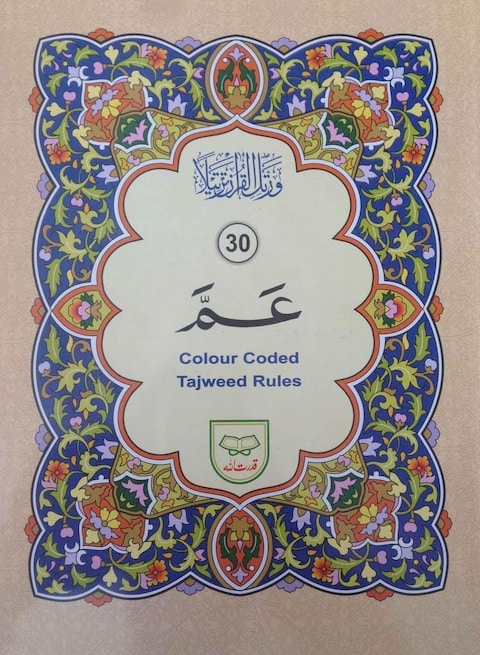 ورتل القرآن ترتیلا
30
عَمَّ
Colour Coded
Tajweed Rules
قدرت الله